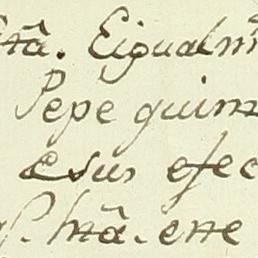 ttâ. Eigualm
Pepe quin
esus efec
P. htâ. ette